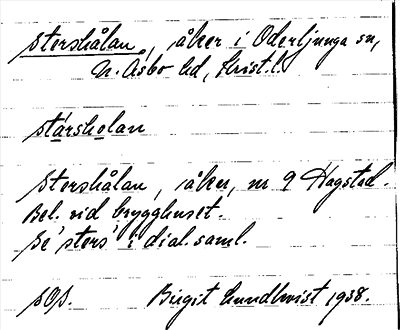 Stershålan, åker i Oderljunga sn,
N. Åsbo hd, Krist. l.
stárshɵlan
Stershålan, åker, nr 9 Hagstad.
Bel. vid brygghuset.
Se 'sters' i dial. saml.
Birgit Lundkvist 1938.